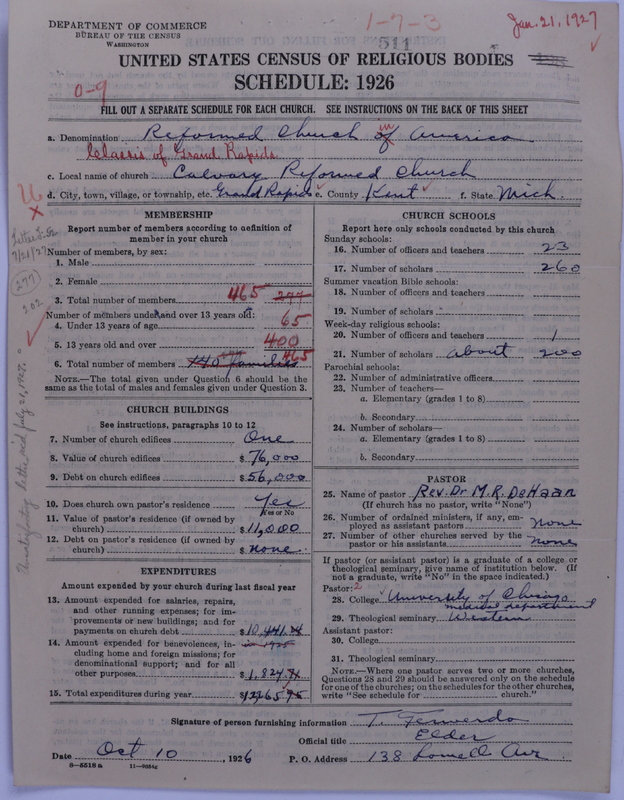 DEPARTMENT OF COMMERCE
BUREAU OF THE CENSUS
WASHINGTON
1-7-3
511
Jan. 21, 1927
UNITED STATES CENSUS OF RELIGIOUS BODIES
SCHEDULE: 1926
0-9
FILL OUT A SEPARATE SCHEDULE FOR EACH CHURCH. SEE INSTRUCTIONS ON THE BACK OF THIS SHEET
a. Denomination Reformed Church in America
Classis of Grand Rapids
c. Local name of church Calvary Reformed Church
d. City, town, village, or township, etc. Grand Rapids e. County Kent f. State Mich.
MEMBERSHIP
Report number of members according to definition of
member in your church
Number of members, by sex:
1. Male
2. Female
3. Total number of members 465 277
Number of members under and over 13 years old:
4. Under 13 years of age 65
5. 13 years old and over 400
6. Total number of members 140 families 465
NOTE.—The total given under Question 6 should be the
same as the total of males and females given under Question 3.
CHURCH BUILDINGS
See instructions, paragraphs 10 to 12
7. Number of church edifices One
8. Value of church edifices $ 76,000
9. Debt on church edifices $ 56,000
10. Does church own pastor's residence Yes
Yes or No
11. Value of pastor's residence (if owned by
church) $ 11,000
12. Debt on pastor's residence (if owned by
church) $ none
EXPENDITURES
Amount expended by your church during last fiscal year
13. Amount expended for salaries, repairs,
and other running expenses; for im-
provements or new buildings; and for
payments on church debt $ 10,441.
14. Amount expended for benevolences, in-
cluding home and foreign missions; for
denominational support; and for all
other purposes $ 1,824.
15. Total expenditures during year $
CHURCH SCHOOLS
Report here only schools conducted by this church
Sunday schools:
16. Number of officers and teachers 23
17. Number of scholars 260
Summer vacation Bible schools:
18. Number of officers and teachers
19. Number of scholars
Week-day religious schools:
20. Number of officers and teachers 1
21. Number of scholars about 200
Parochial schools:
22. Number of administrative officers
23. Number of teachers—
a. Elementary (grades 1 to 8)
b. Secondary
24. Number of scholars—
a. Elementary (grades 1 to 8)
b. Secondary
PASTOR
25. Name of pastor Rev. Dr M.R. DeHaan
(If church has no pastor, write "None")
26. Number of ordained ministers, if any, em-
ployed as assistant pastors none
27. Number of other churches served by the
pastor or his assistants none
If pastor (or assistant pastor) is a graduate of a college or
theological seminary, give name of institution below. (If
not a graduate, write "No" in the space indicated.)
Pastor: 2
28. College University of Chicago
medical department
29. Theological seminary Western
Assistant pastor:
30. College
31. Theological seminary
NOTE.—Where one pastor serves two or more churches,
Questions 28 and 29 should be answered only on the schedule
for one of the churches; on the schedules for the other churches,
write "See schedule for church."
Signature of person furnishing information T.
Official title Elder
Date Oct 10, 1926 P. O. Address 138 Lowell Ave
8-5518 a